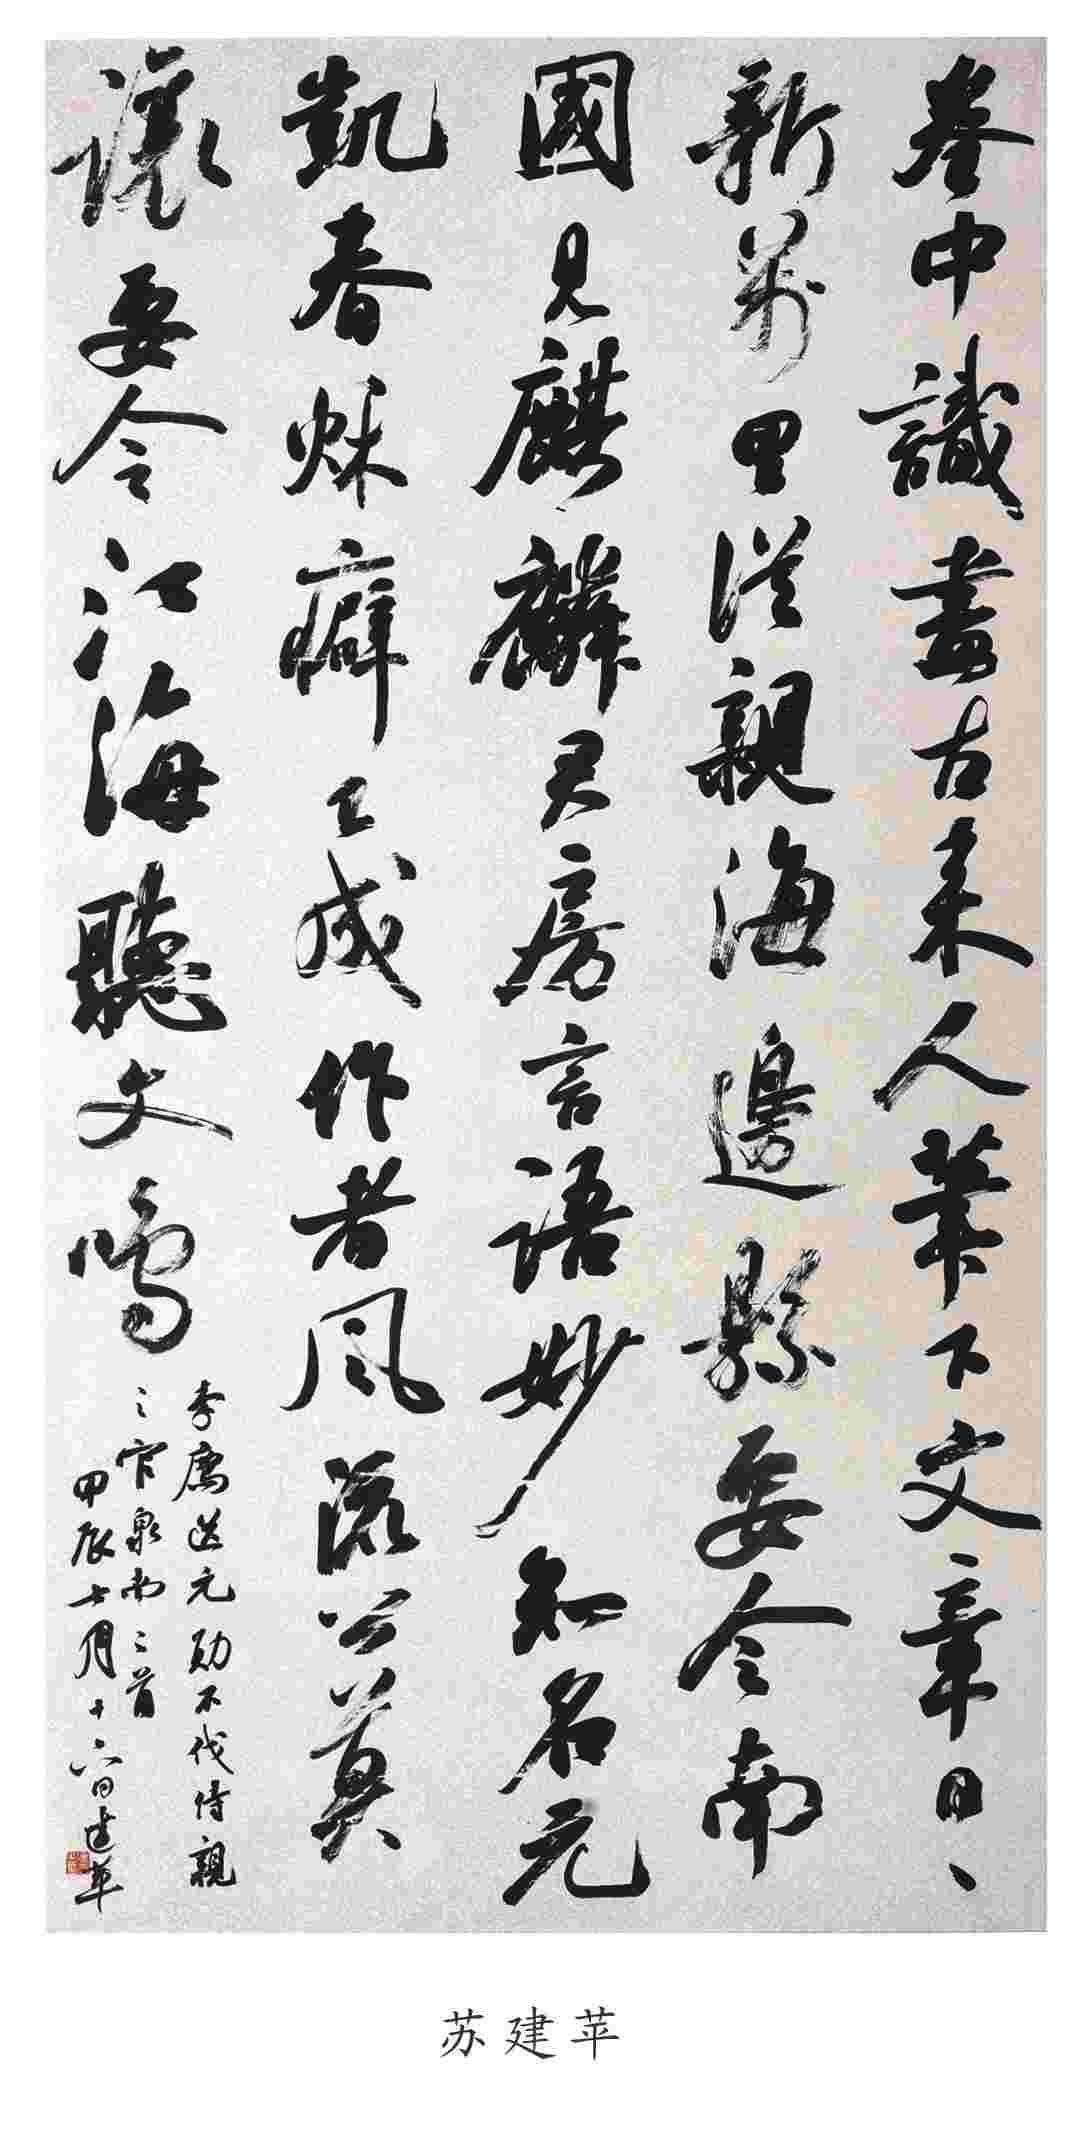 卷中識盡古來人筆下文章日、
新萬里從親海邊縣要令南
國見麒麟君房言語妙知名元
凱春秌癖已成作者風流公莫
讓要令江海聽文鳴
李廌送元勛不伐侍親
之官泉南二首
甲辰七月十六日建苹
苏建苹